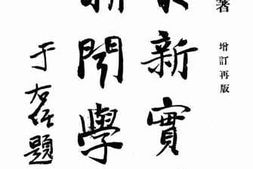 著
增訂再版
新實
新聞學
于右任題